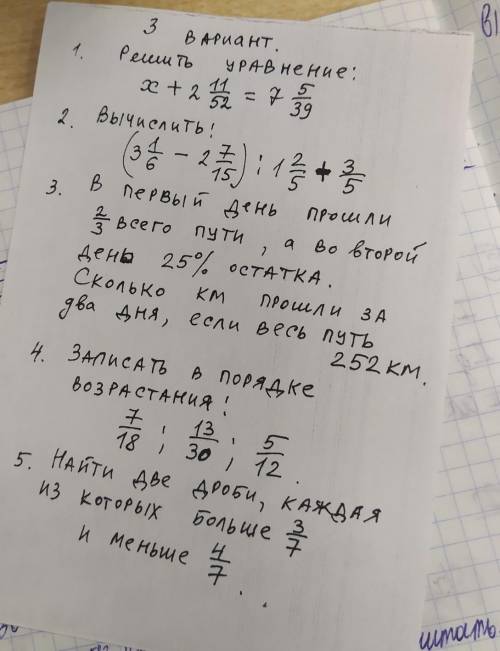 3 вариант.
1. Решить уравнение:
x + 2 11/52 = 7 5/39
2. Вычислить!
(3 1/6 - 2 7/15) : 1 2/5 + 3/5
3. В первый день прошли
2/3 всего пути, а во второй
день 25% остатка.
Сколько км прошли за
два дня, если весь путь
252 км.
4. Записать в порядке
возрастания!
7/18 ; 13/30 ; 5/12.
5. Найти две дроби, каждая
из которых больше 3/7
и меньше 4/7.
штать